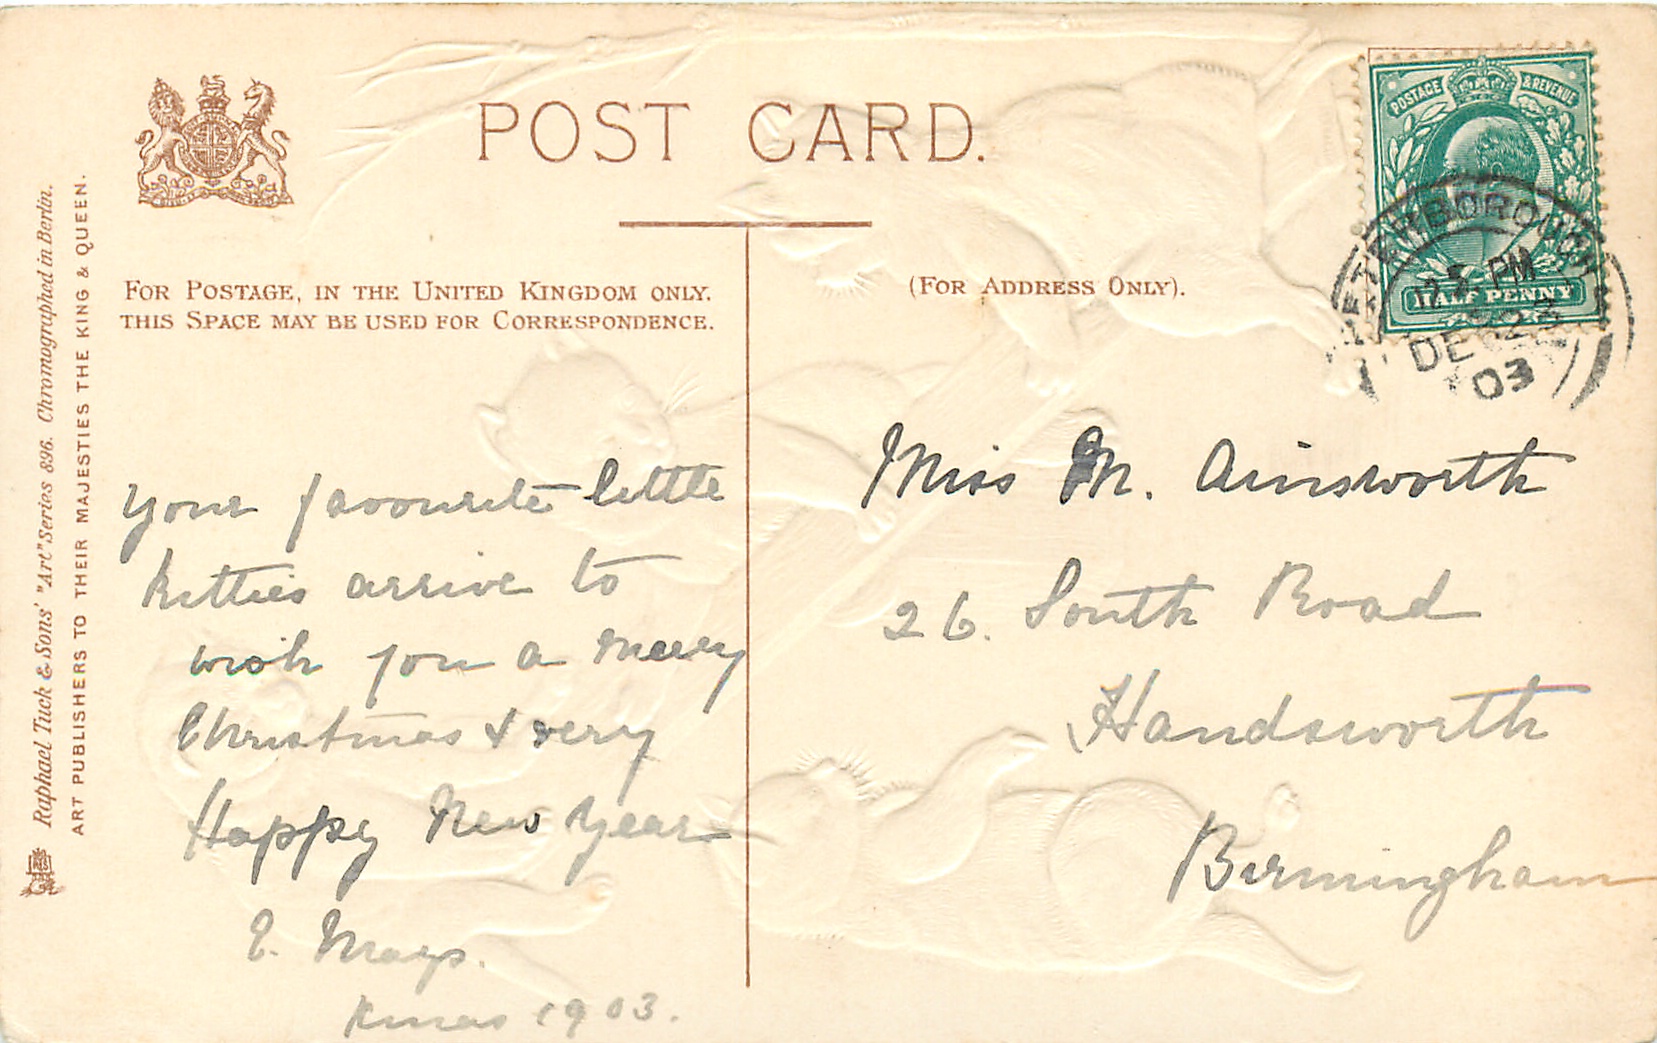 POST CARD.
FOR POSTAGE, IN THE UNITED KINGDOM ONLY.
THIS SPACE MAY BE USED FOR CORRESPONDENCE.
(FOR ADDRESS ONLY).
Raphael Tuck & Sons' "Art" Series 896. Chromographed in Berlin.
ART PUBLISHERS TO THEIR MAJESTIES THE KING & QUEEN.
your favourite little
kitties arrive to
wish you a merry
Christmas & very
Happy New Year
E. Mays.
Xmas 1903.
Miss M. Ainsworth
26. South Road
Handsworth
Birmingham
POSTAGE & REVENUE
HALF PENNY
PETERBOROUGH
PM
DE 23
03